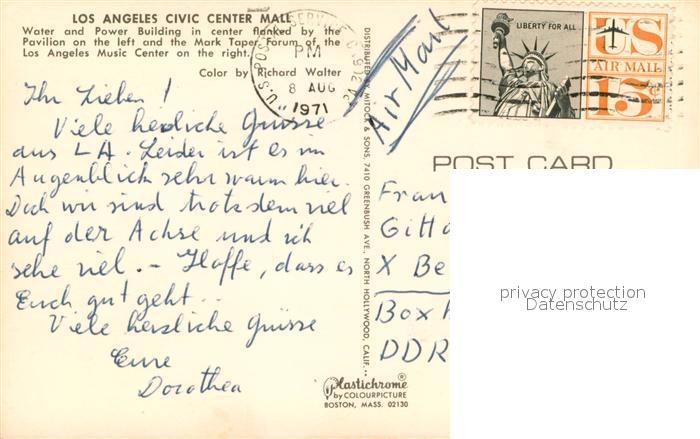 LOS ANGELES CIVIC CENTER MALL
Water and Power Building in center flanked by the
Pavilion on the left and the Mark Taper Forum of the
Los Angeles Music Center on the right.
Color by Richard Walter
U.S. POSTAL SERVICE
PM
8 AUG
1971
Ihr Lieben!
Viele herzliche Grüsse
aus LA. Leider ist es im
Augenblick sehr warm hier.
Doch wir sind trotzdem viel
auf der Achse und ich
sehe viel. – Hoffe, dass es
Euch gut geht..
Viele herzliche Grüsse
Eure
Dorothea
DISTRIBUTED BY MITOCK & SONS, 7410 GREENBUSH AVE., NORTH HOLLYWOOD, CALIF.
Plastichrome
by COLOURPICTURE
BOSTON, MASS. 02130
Air Mail
LIBERTY FOR ALL
US
AIR MAIL
15c
POST CARD
Fran
Gitta
X Be
Box
DDR
privacy protection
Datenschutz